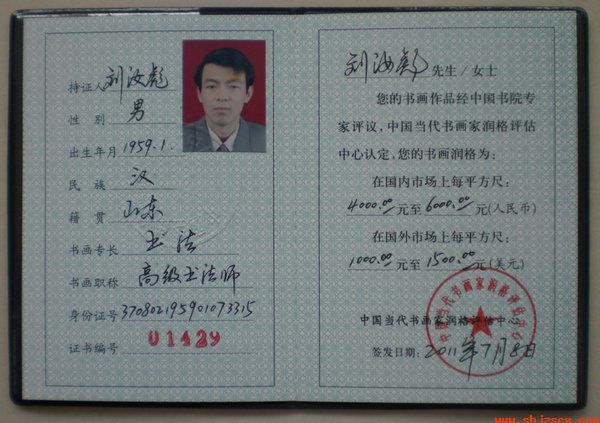 持证人 刘汝彪
性 别 男
出生年月 1959.1.
民 族 汉
籍 贯 山东
书画专长 书法
书画职称 高级书法师
身份证号 370802195901073315
证书编号 01429
刘汝彪 先生/女士
您的书画作品经中国书院专
家评议,中国当代书画家润格评估
中心认定,您的书画润格为:
在国内市场上每平方尺:
4000.00元至6000.00元(人民币)
在国外市场上每平方尺:
1000.00元至1500.00元(美元)
中国当代书画家润格评估中心
中国当代书画家润格评估中心
签发日期: 2011年7月8日
www.shjzscx.com